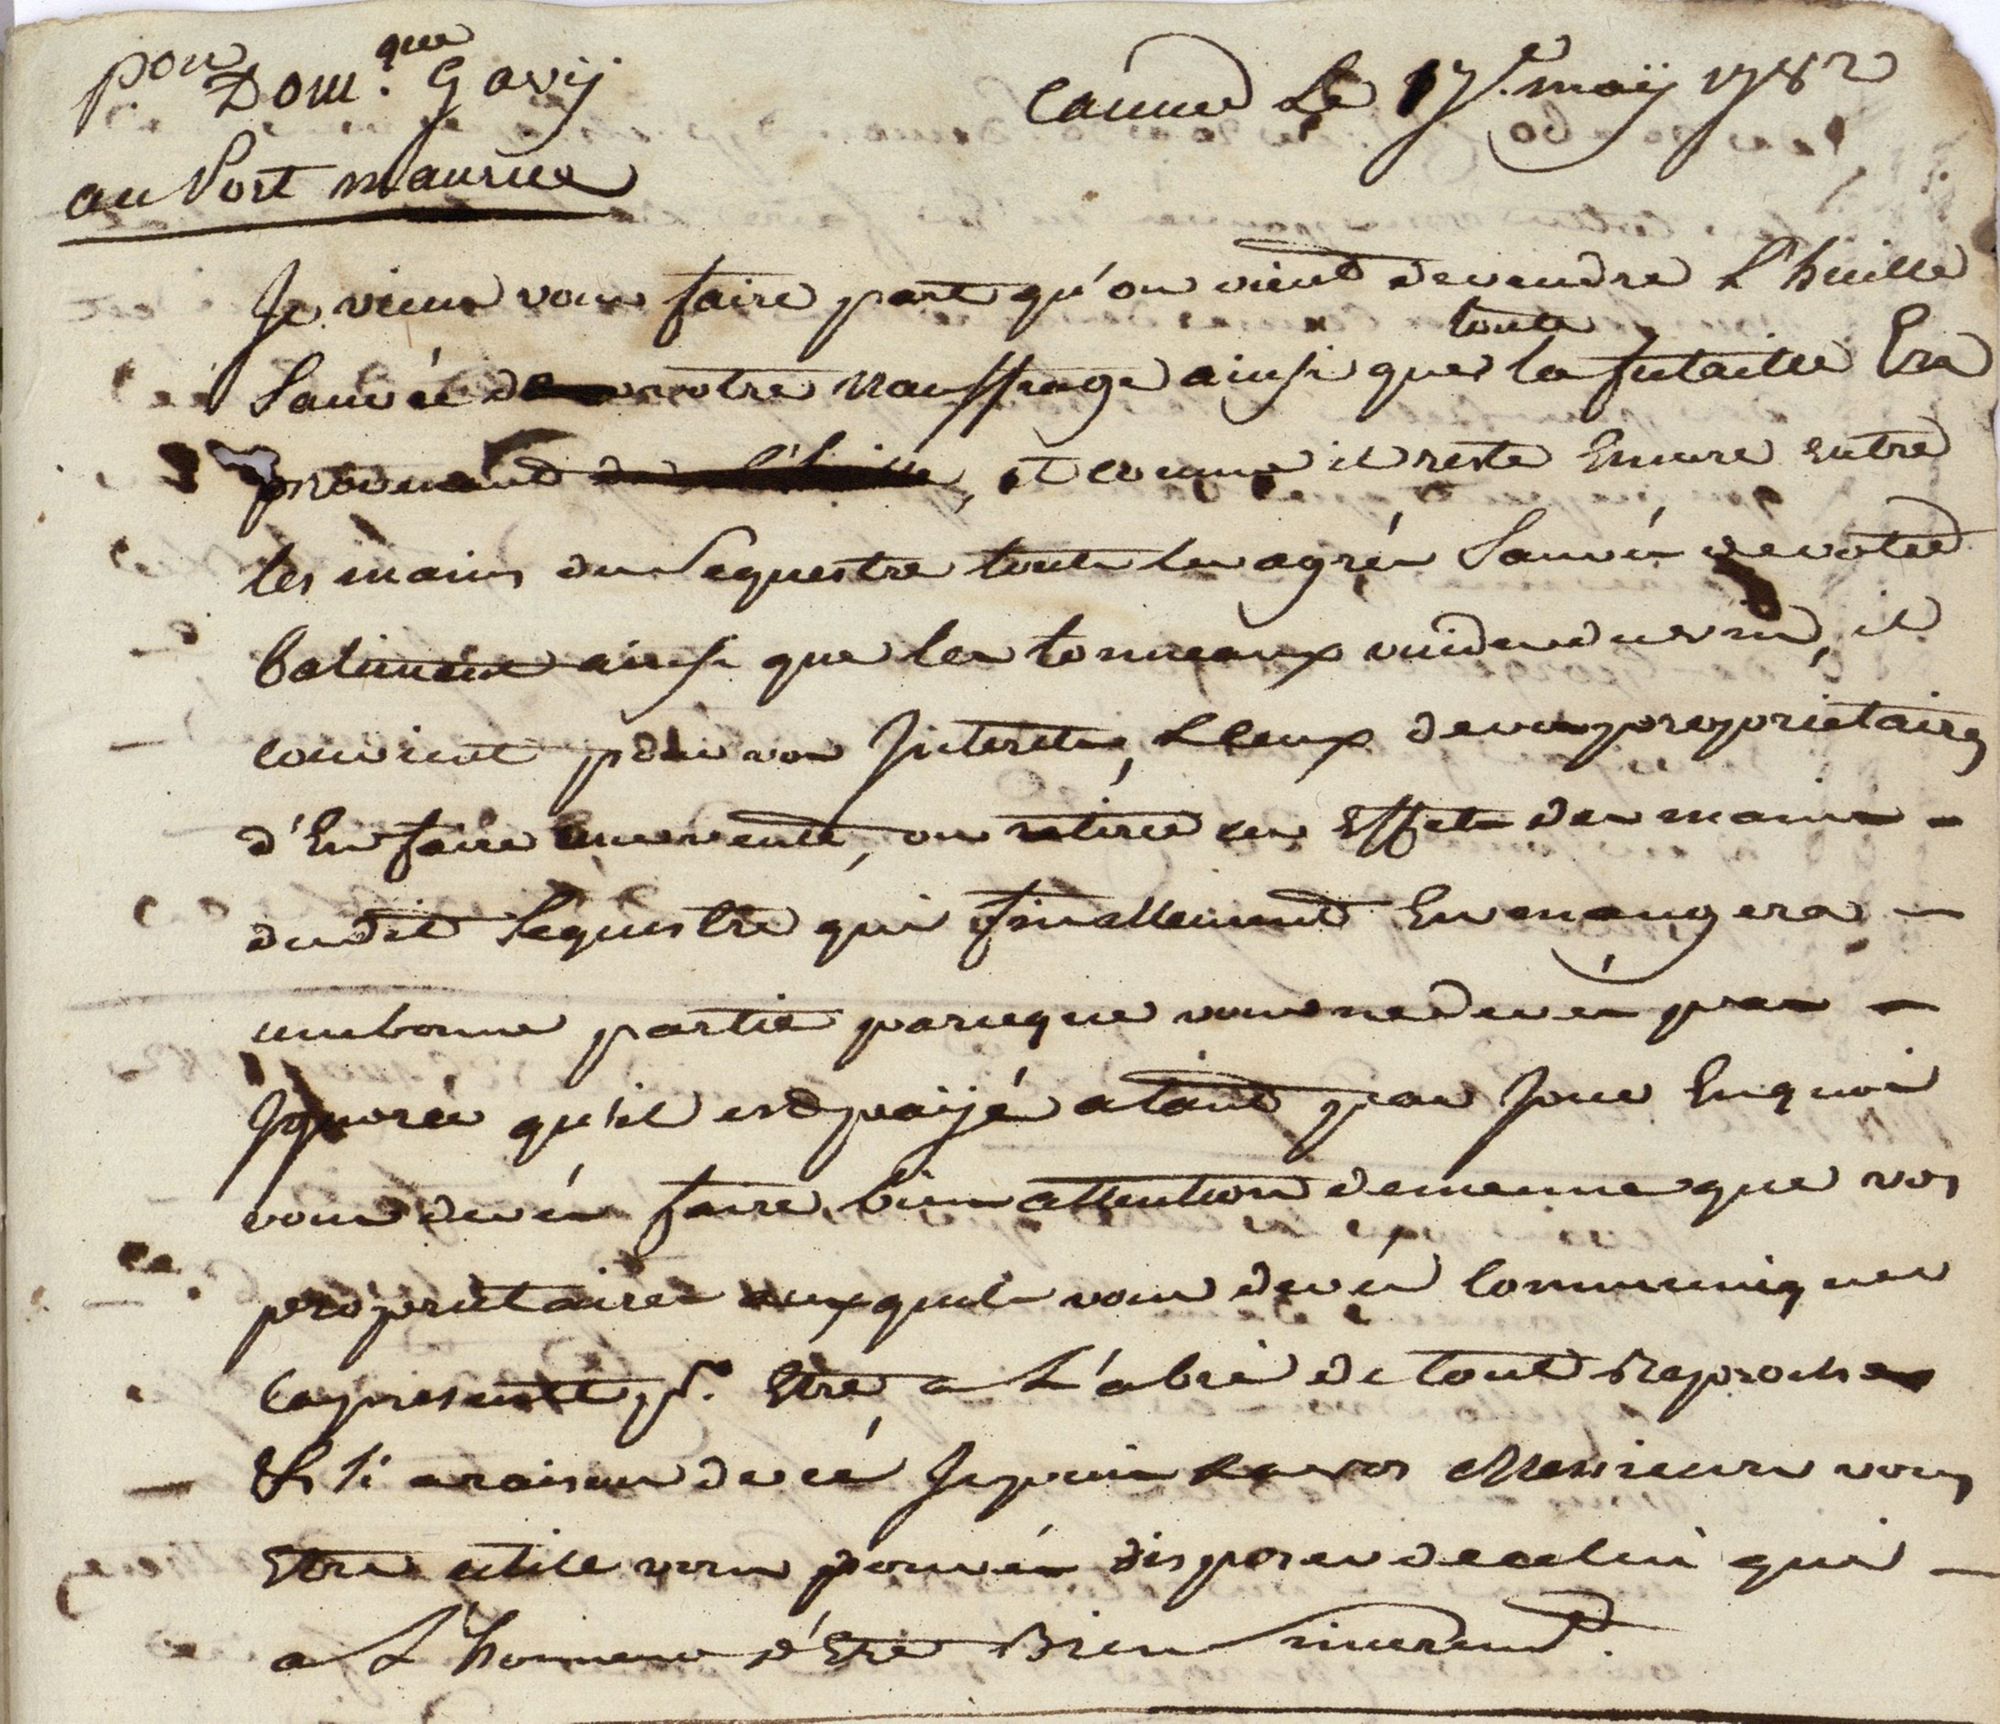 pon Dom.que Gavij
Canne Le 17e. maÿ 1782
au Port maurice
Je viens vous faire part qu'on vient devendre L'huille
Sauvée de votre nauffrage ainsi que toute la futaille En
provenant de l'huille, et comme il reste Encore entre
les mains du Sequestre touts les agrés Sauvés devotre
batiment ainsi que les tonneaux vuides du vin, il
convient pour vos Interets, & ceux devos proprietaires
d'En faire une vente, ou retirer ces Effets des mains
dudit Sequestre qui finallement En mangera
une bonne partie parceque vous ne devés pas
Ignorer qu'il est païjé a tant par Jour En quoi
vous devés faire bien attention de meme que vos
proprietaires auxquels vous devés Communiquer
la presente pr. Etre a L'abri de tout Reproche
& Si a raison de cé Je puis a vos Messieurs vous
Etre utile vous pouvés disposer de celui qui
a L'honneur d'Etre Bien Sinceremt.